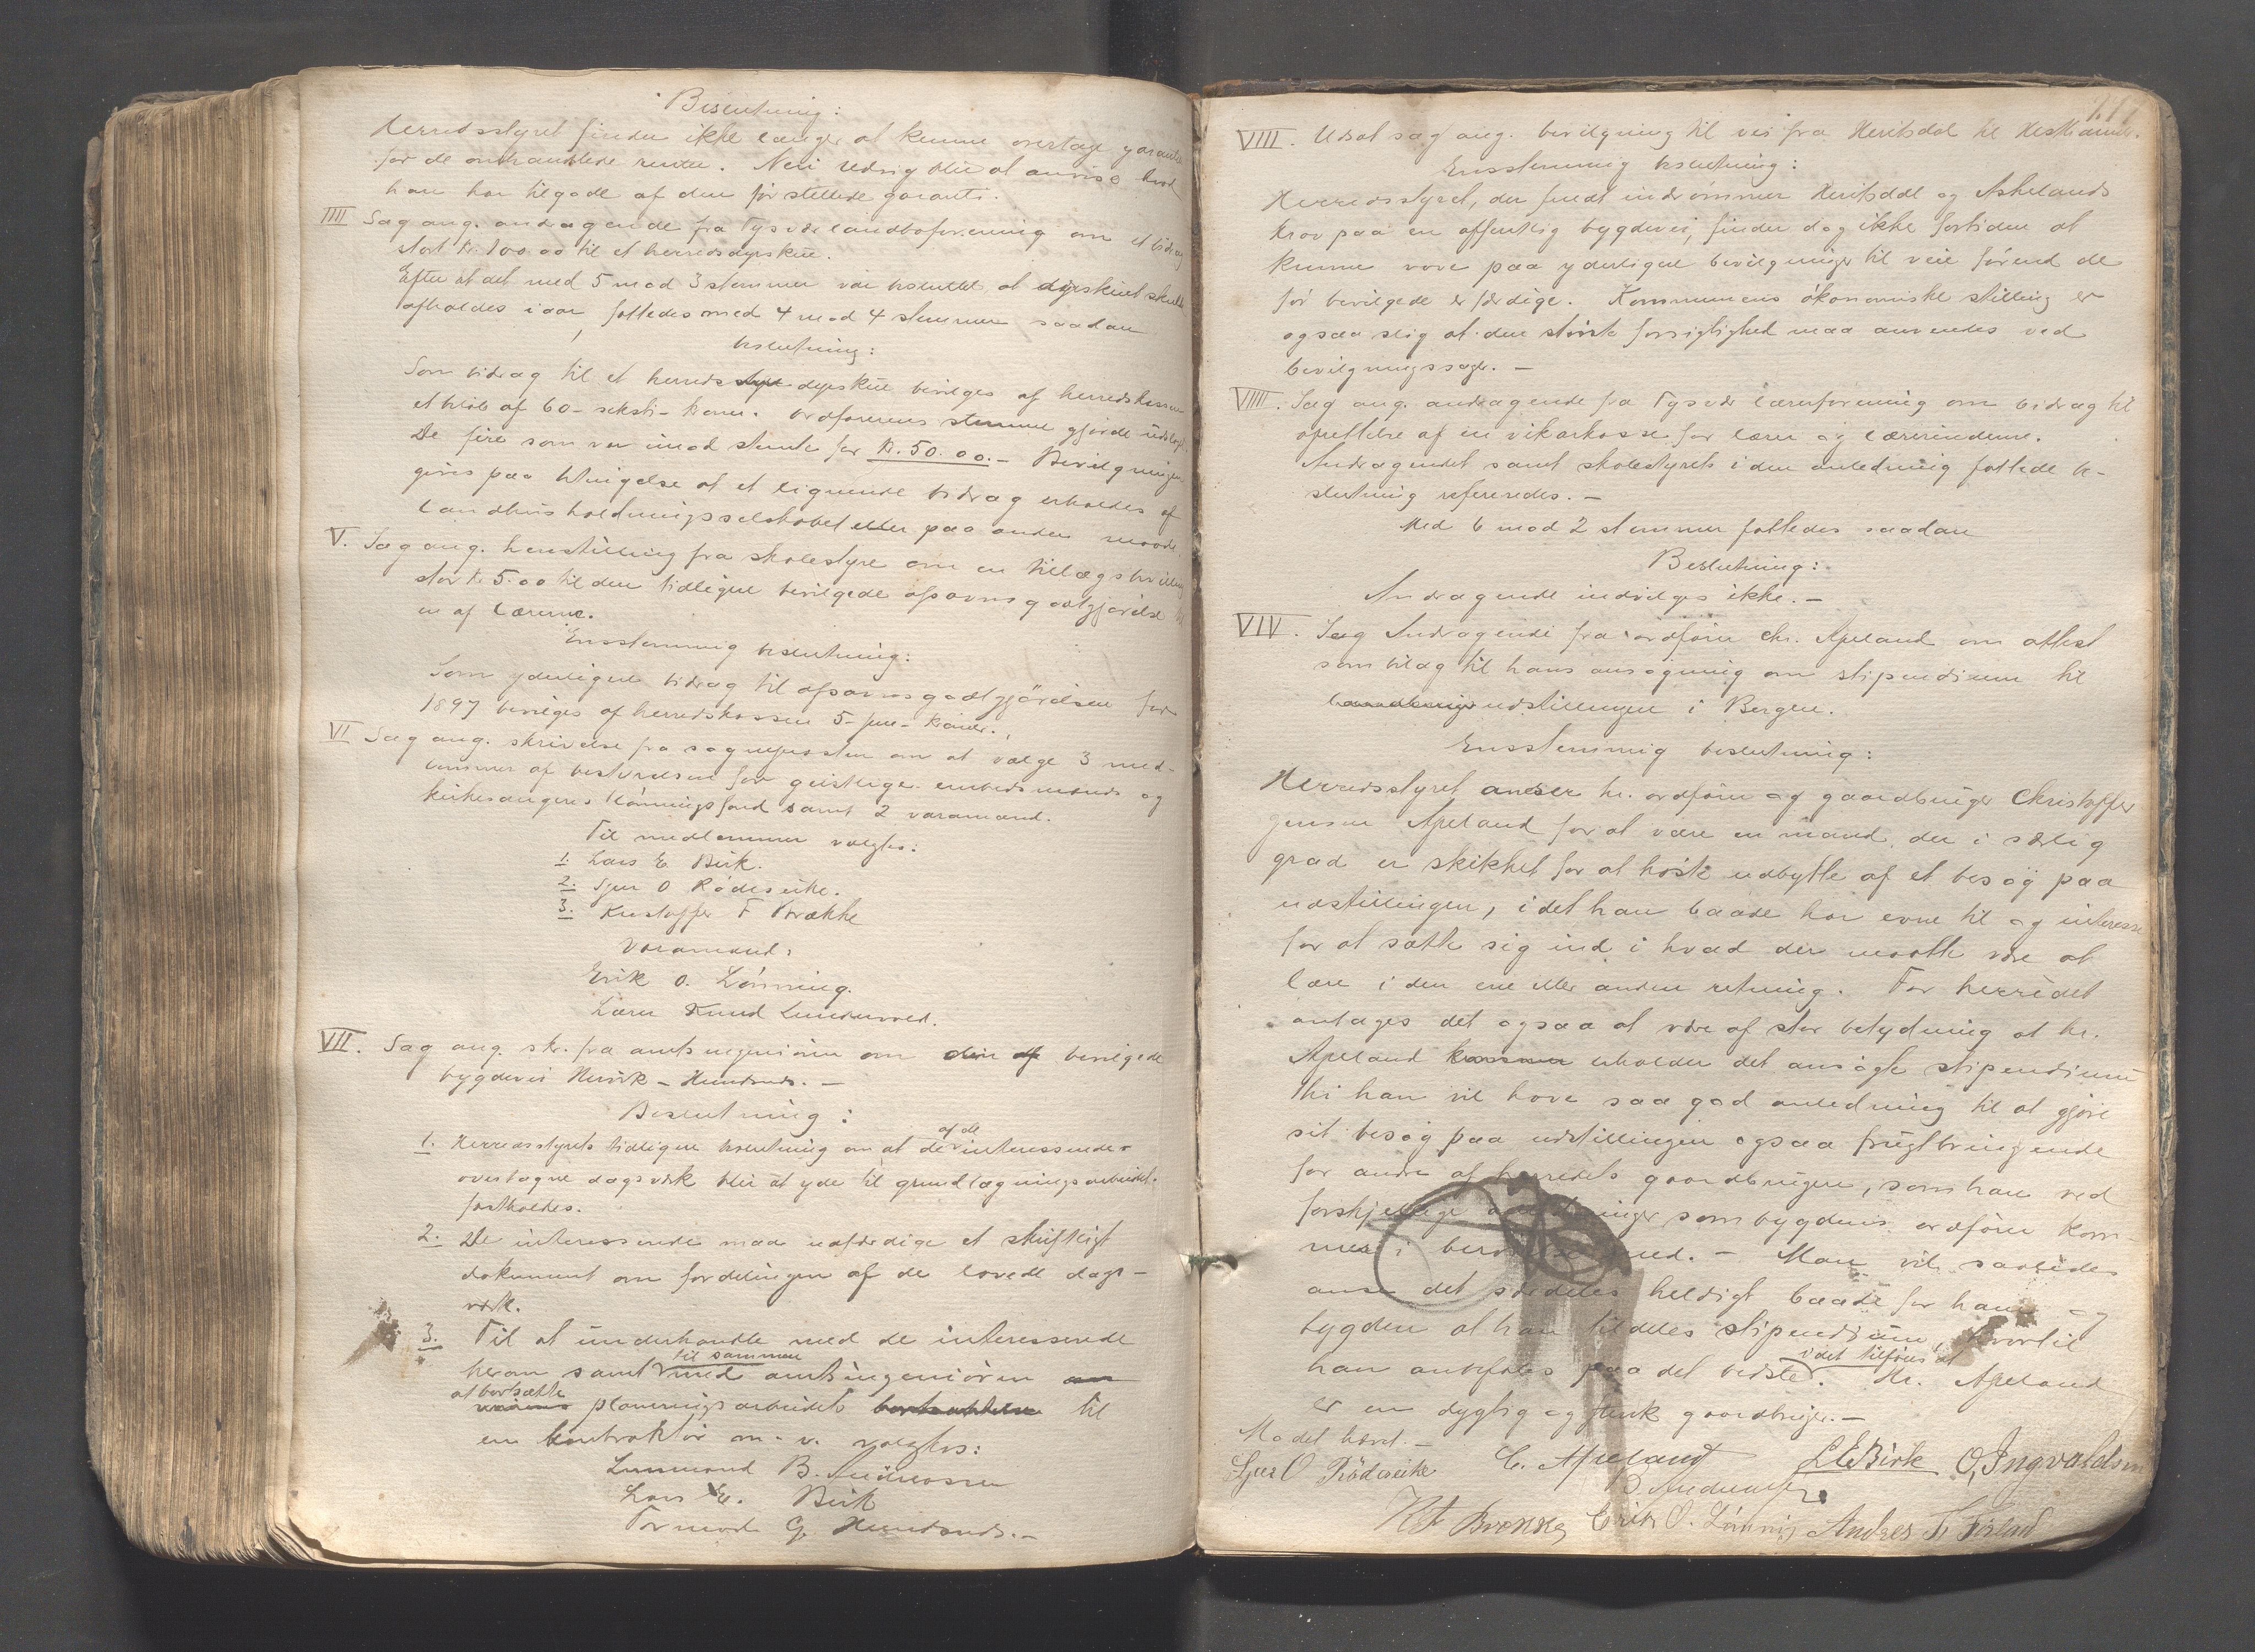 Beslutning:
Herredsstyret finder ikke længer at kunne overtage garantie
for de omhandlede renter. Neri Udvig blir at anvise hvad
han har tilgode af den før stillede garanti.
IIII Sag ang. andragende fra Tysvær landboforening om et bidrag
stort kr. 100.00 til et herredsdyrskue.
Efter at det med 5 mod 3 stemmer var besluttet at dyrskuet skulde
afholdes i aar, fattedes med 4 mod 4 stemmer saadan
beslutning:
Som bidrag til et herreds dyrskue bevilges af herredskassen
et beløb af 60 - seksti - kroner. Ordførerens stemme gjorde udslaget.
De fire som var imod stemte for kr. 50.00. - Bevilgningen
gives paa betingelse at et lignende bidrag erholdes af
landhusholdningsselskabet eller paa anden maade.
V. Sag ang. henstilling fra skolestyre om en tillægsbevilling
stor kr 5.00 til den tidligere bevilgede afsavnsgodtgjørelse til
en af lærerne.
Enstemmig beslutning:
Som yderligere bidrag til afsavnsgodtgjörelsen for
1897 bevilges af herredskassen 5 - fem - kroner.
VI Sag ang. skrivelse fra sognepresten om at vælge 3 med-
lemmer af bestyrelsen for geistlige embedsmænds og
kirkesangeres lønningsfond samt 2 varamænd.
Til medlemmer valgtes:
1. Lars E Birk.
2. Sjur O Rödseike.
3. Kristoffer F Brække
Varamænd:
Erik O. Lönning.
Lærer Knud Lundervold.
VII. Sag ang. skr. fra amtsingeniören om den bevilgede
bygdevei Hervik - Hundsnes. -
Beslutning:
1. Herredsstyrets tidligere beslutning om at de af de interesserede
overtagne dagsværk blir at yde til grundlægningsarbeidet
fastholdes.
2. De interesserede maa udfærdige et skriftligt
dokument om fordelingen af de lovede dags-
værk.
3. Til at underhandle med de interesserede
herom samt til sammen med amtsingeniören
at bortsætte planeringsarbeidet til
en kontraktör m. v. valgtes:
Lensmand B. Andreassen
Lars E. Birk
Tormod G. Hundsnes. -
VIII. Udsat sag ang. bevilgning til vei fra Heritsdal til
Ensstemmig beslutning:
Herredsstyret, der fuldt indrømmer Heritsdal og Askelands
krav paa en offentlig bygdevei, finder dog ikke fortiden at
kunne vove paa yderligere bevilgninger til veie förend de
før bevilgede er færdige. Kommunens ökonomiske stilling er
ogsaa slig at den største forsigtighed maa anvendes ved
bevilgningssager. -
VIIII. Sag ang. andragende fra Tysvær lærerforening om bidrag til
oprettelse af en vikarkasse for lærere og lærerinderne.
Andragendet samt skolestyrets i den anledning fattede be-
slutning refereredes. -
Med 6 mod 2 stemmer fattedes saadan
Beslutning:
Andragende indvilges ikke. -
VIV. Sag Andragende fra ordfører Chr. Apeland om attest
som bilag til hans ansøgning om stipendium til
udstillingen i Bergen.
Ensstemmig beslutning:
Herredsstyret anser hr. ordfører og gaardbruger Christoffer
Jensen Apeland for at være en mand, der i særlig
grad er skikket for at høste udbytte af et besøg paa
udstillingen, idet han baade har evne til og interesse
for at sætte sig ind i hvad der maatte være at
lære i den ene eller anden retning. For herredet
antages det ogsaa at være af stor betydning at hr.
Apeland erholder det ansøgte stipendium
thi han vil have saa god anledning til at gjøre
sit besøg paa udstillingen ogsaa frugtbringende
for andre af herredets gaardbrugere, som han ved
forskjellige anledninger som bygdens ordfører kom-
mer i berørelse med. - Man vil saaledes
anse det særdeles heldigt baade for ham og
bygden at han tildeles stipendium, hvortil
han anbefales paa det bedste, idet tilføies at Hr. Apeland
er en dygtig og flink gaardbruger. -
Mødet hævet. -
Sjur O Rödseike C. Apeland L E Birk O, Ingvaldsen
B. Andreassen
K F Brekke Erik O. Lönning Andres T.